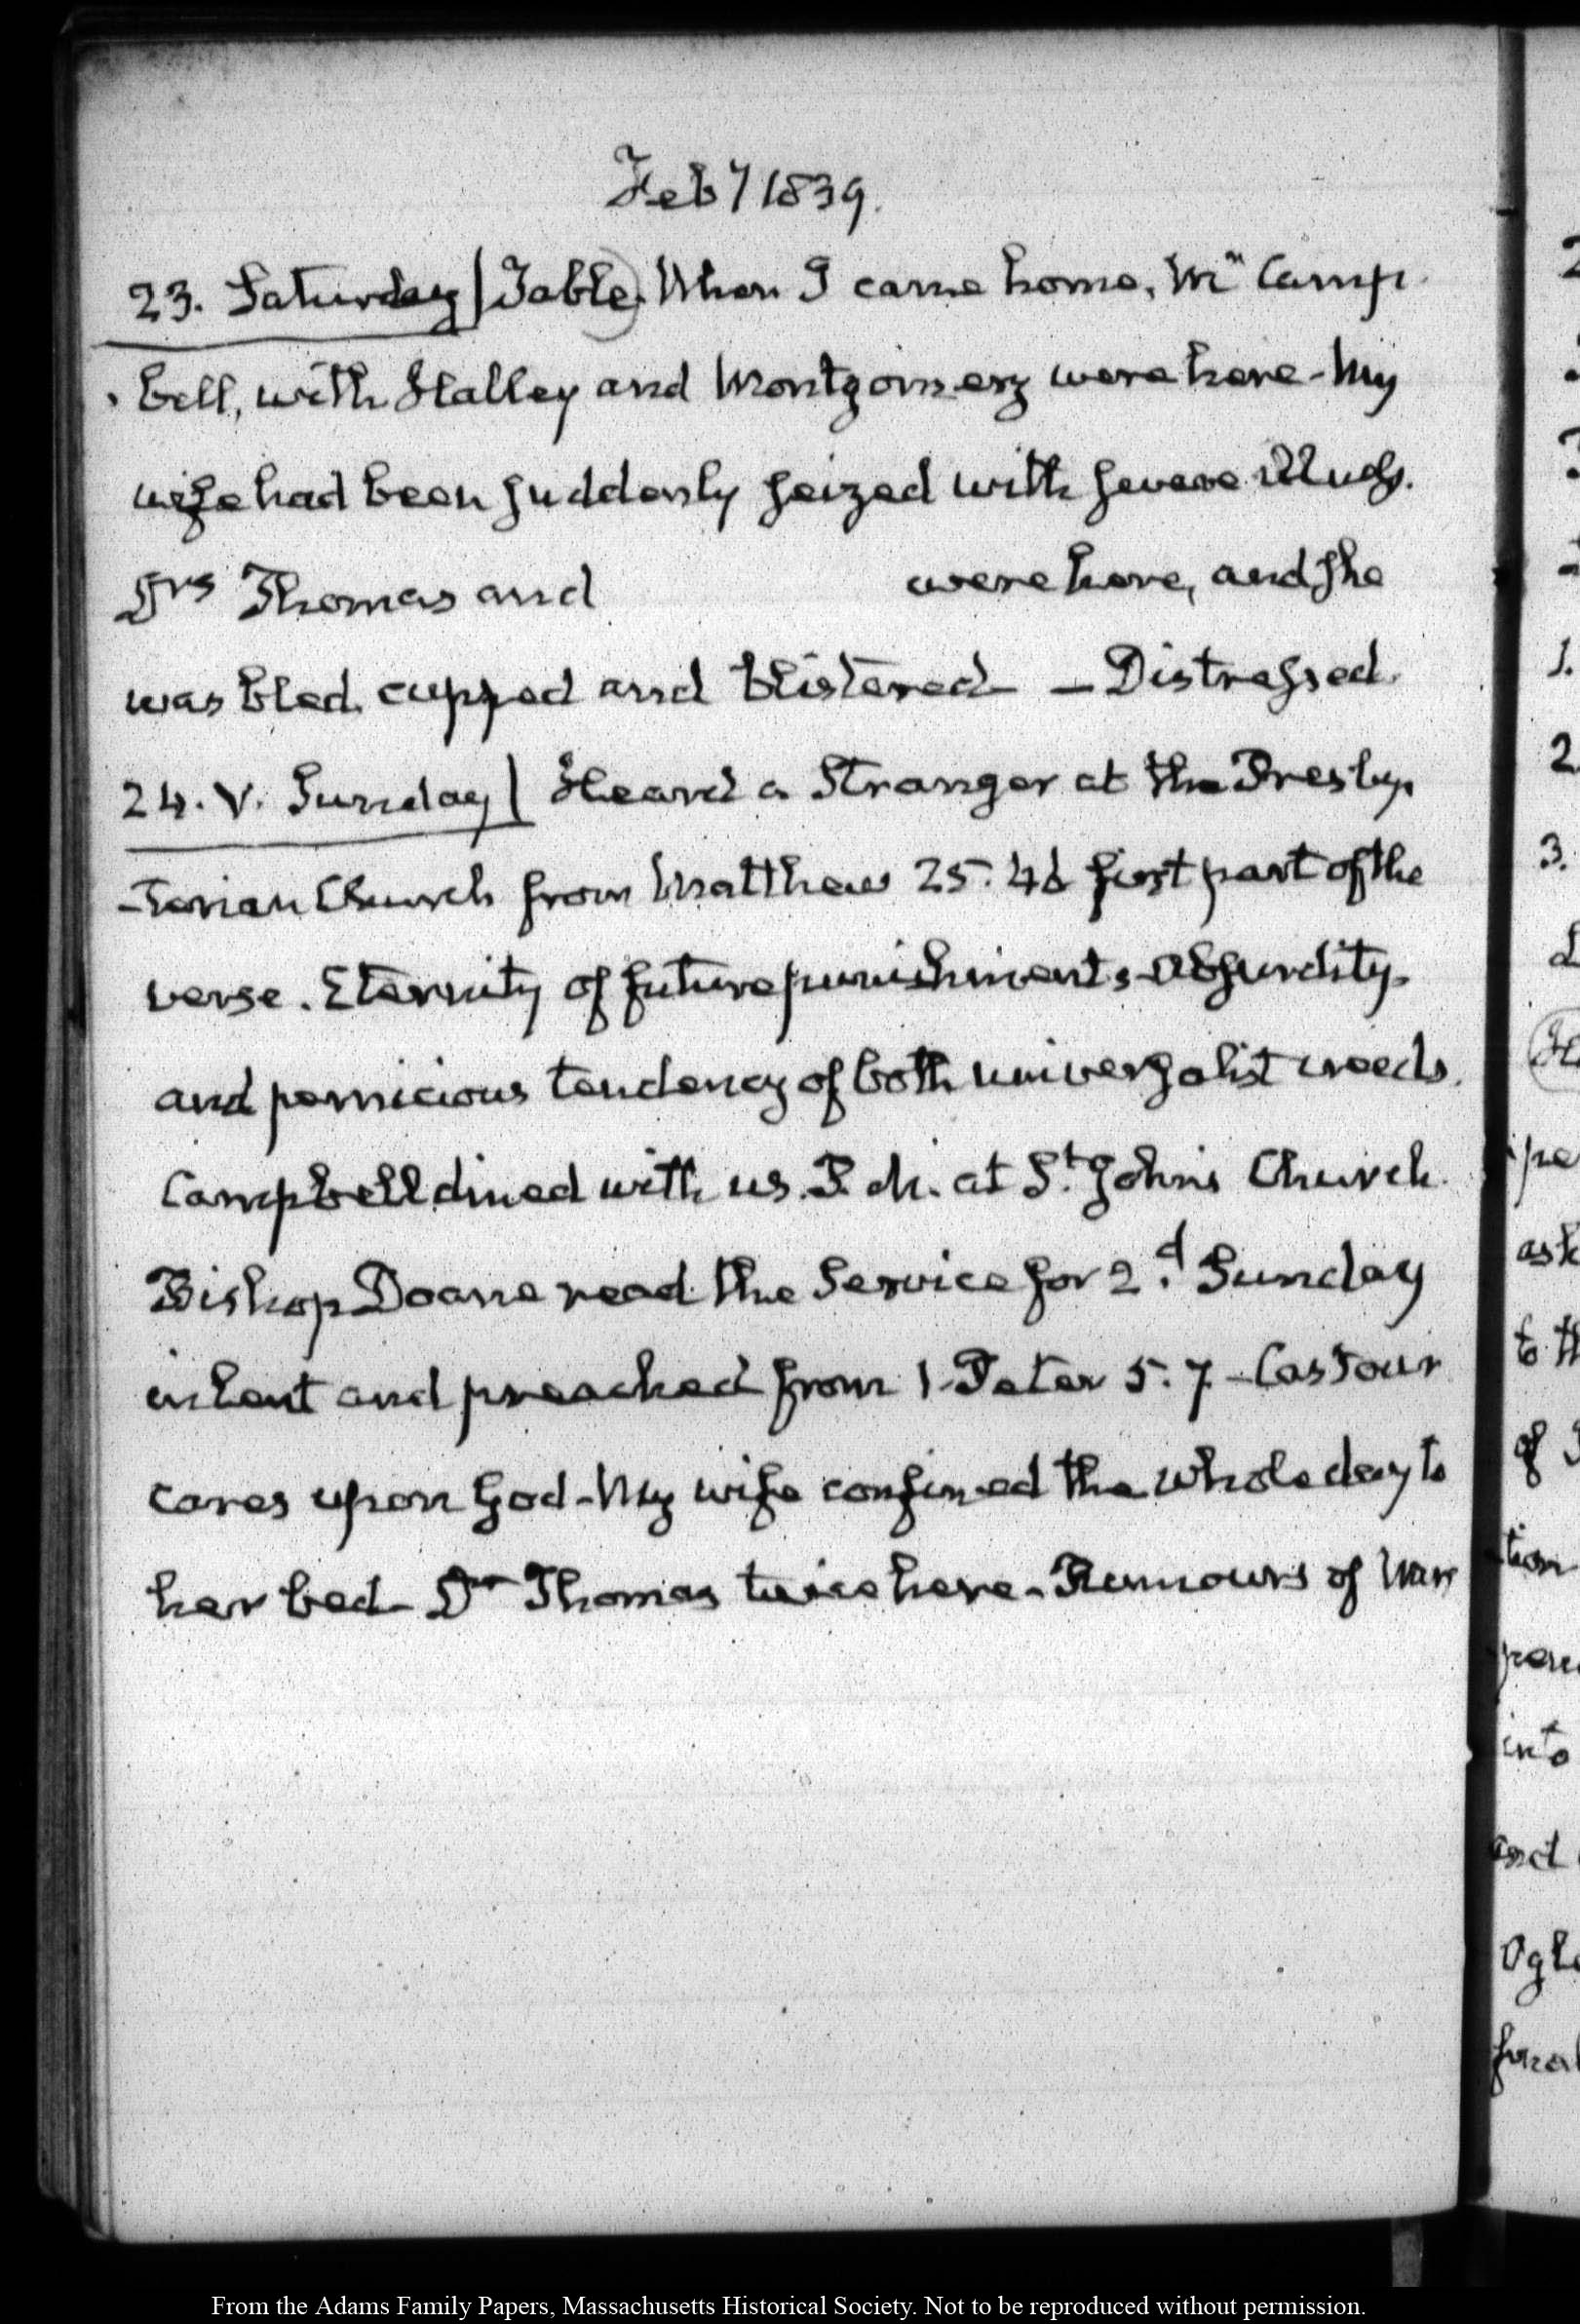 Feby 1839.
23. Saturday | Table. When I came home, Mr Camp-
-bell, with Halley and Montgomery were here - My
wife had been suddenly seized with severe illness.
Drs Thomas and were here, and she
was bled, cupped and blistered - Distressed.
24. V. Sunday | Heard a Stranger at the Presby-
-terian Church from Matthew 25. 46 first part of the
verse. Eternity of future punishments - Absurdity
and pernicious tendency of both universalist creeds.
Campbell dined with us. P.M. at St. John's Church.
Bishop Doane read the Service for 2d. Sunday
in Lent and preached from 1. Peter 5. 7 - Cast our
cares upon God - My wife confined the whole day to
her bed - Dr Thomas twice here - Rumours of War
From the Adams Family Papers, Massachusetts Historical Society. Not to be reproduced without permission.